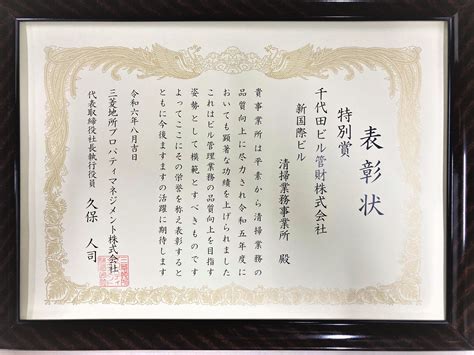 表彰状
特別賞
千代田ビル管財株式会社
新国際ビル
清掃業務事業所 殿
貴事業所は平素から清掃業務の
品質向上に尽力され令和五年度に
おいても顕著な功績を上げられました
これはビル管理業務の品質向上を目指す
姿勢として模範とすべきものです
よってここにその栄誉を称え表彰すると
ともに今後ますますの活躍に期待します
令和六年八月吉日
三菱地所プロパティマネジメント株式会社
代表取締役社長執行役員 久保 人司